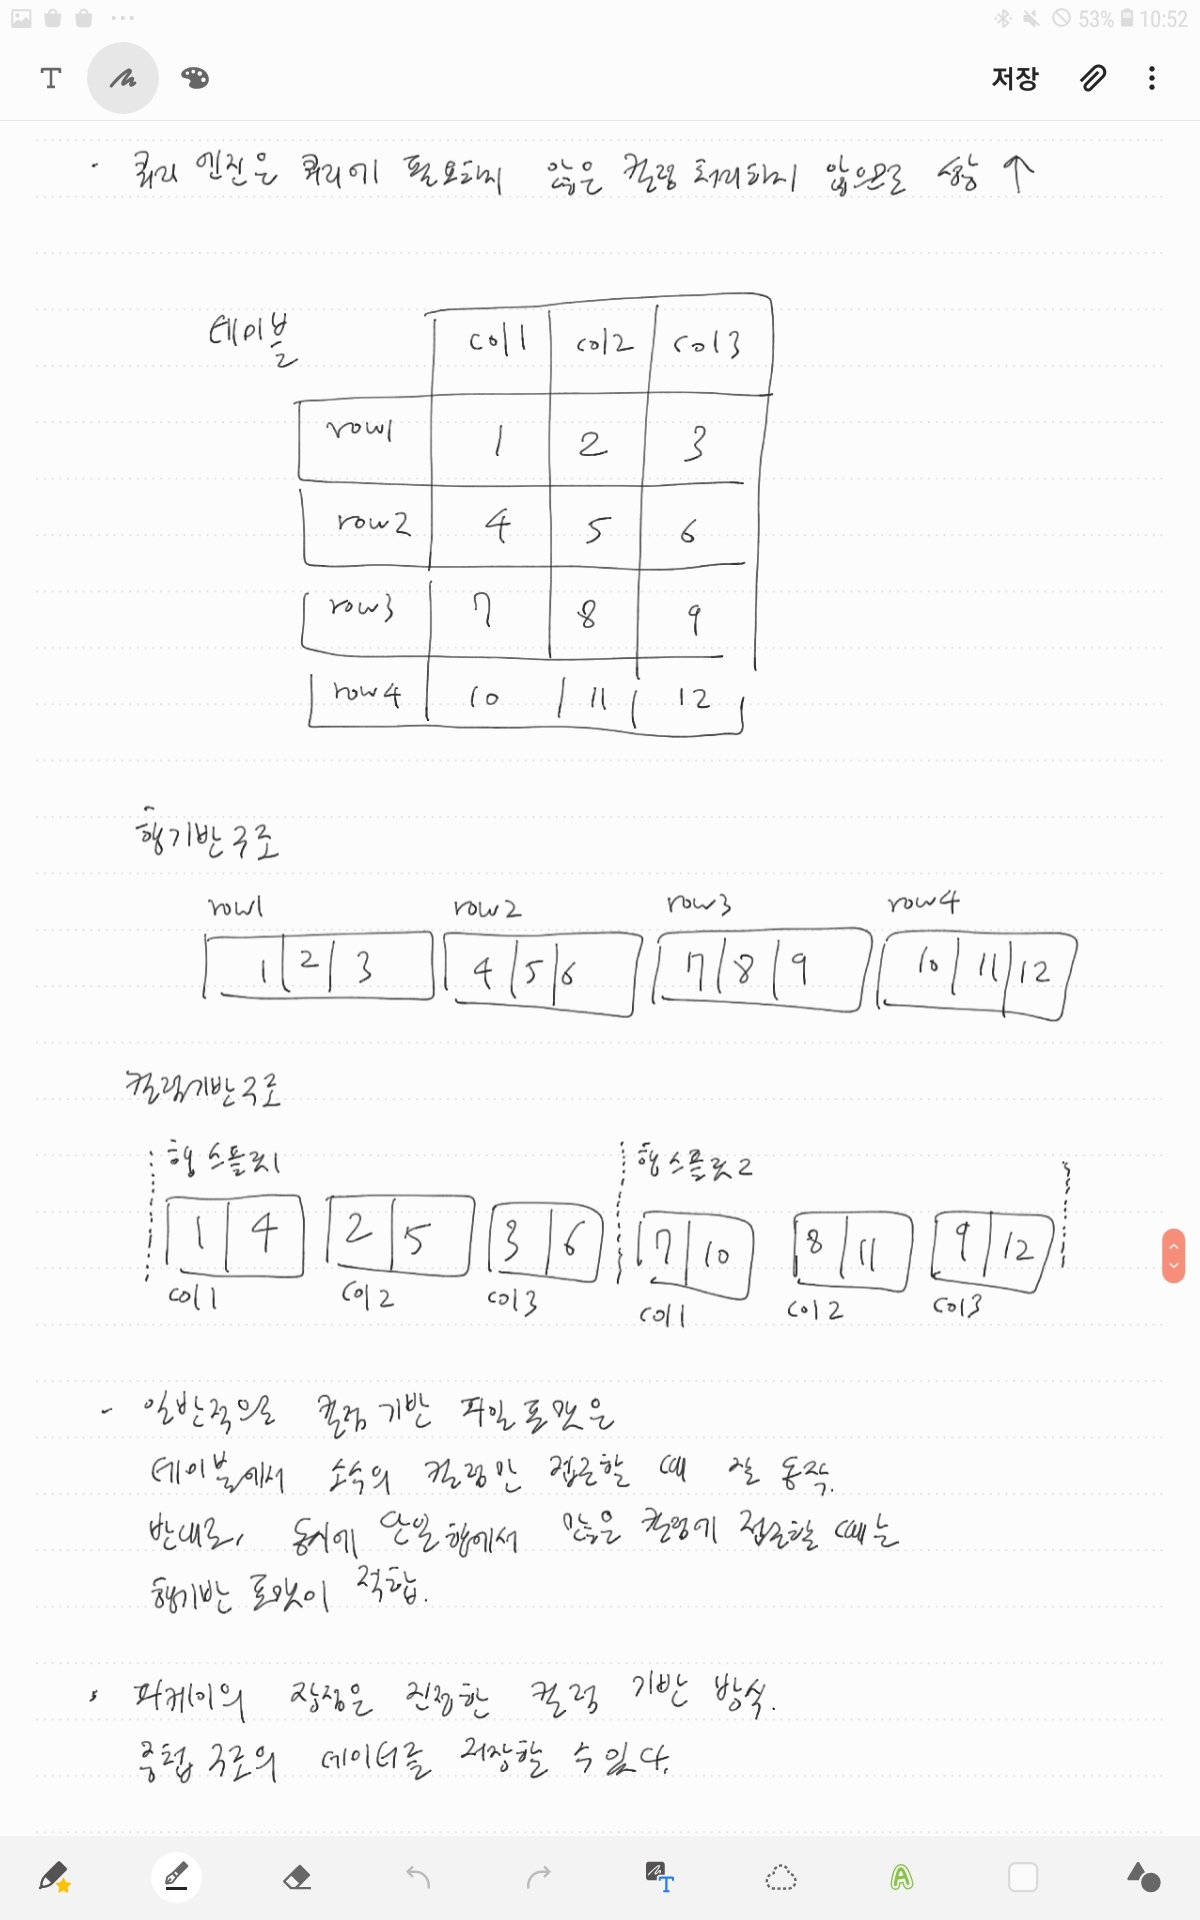 53% 10:52
T 저장
· 쿼리 엔진은 쿼리에 필요하지 않은 컬럼 처리하지 않으므로 성능 ↑
테이블
col1 col2 col3
row1 1 2 3
row2 4 5 6
row3 7 8 9
row4 10 11 12
행기반구조
row1 row2 row3 row4
1 2 3 4 5 6 7 8 9 10 11 12
컬럼기반구조
행 스플릿1 행 스플릿2
1 4 2 5 3 6 7 10 8 11 9 12
col1 col2 col3 col1 col2 col3
- 일반적으로 컬럼 기반 파일 포맷은
테이블에서 소수의 컬럼만 접근할 때 잘 동작.
반대로, 동시에 단일 행에서 많은 컬럼에 접근할 때는
행기반 포맷이 적합.
· 파케이의 장점은 진정한 컬럼 기반 방식.
중첩 구조의 데이터를 저장할 수 있다.
T A